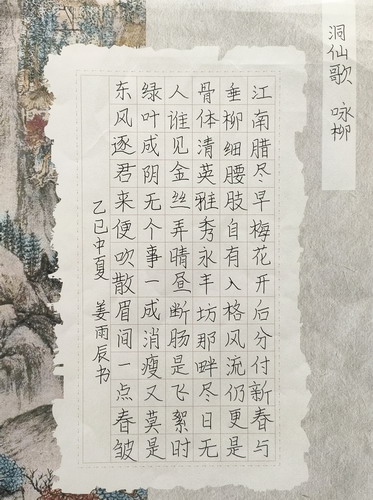 洞仙歌 咏柳
江南腊尽早梅花开后分付新春与
垂柳细腰肢自有入格风流仍更是
骨体清英雅秀永丰坊那畔尽日无
人谁见金丝弄晴昼断肠是飞絮时
绿叶成阴无个事一成消瘦又莫是
东风逐君来便吹散眉间一点春皱
乙巳中夏 姜雨辰书